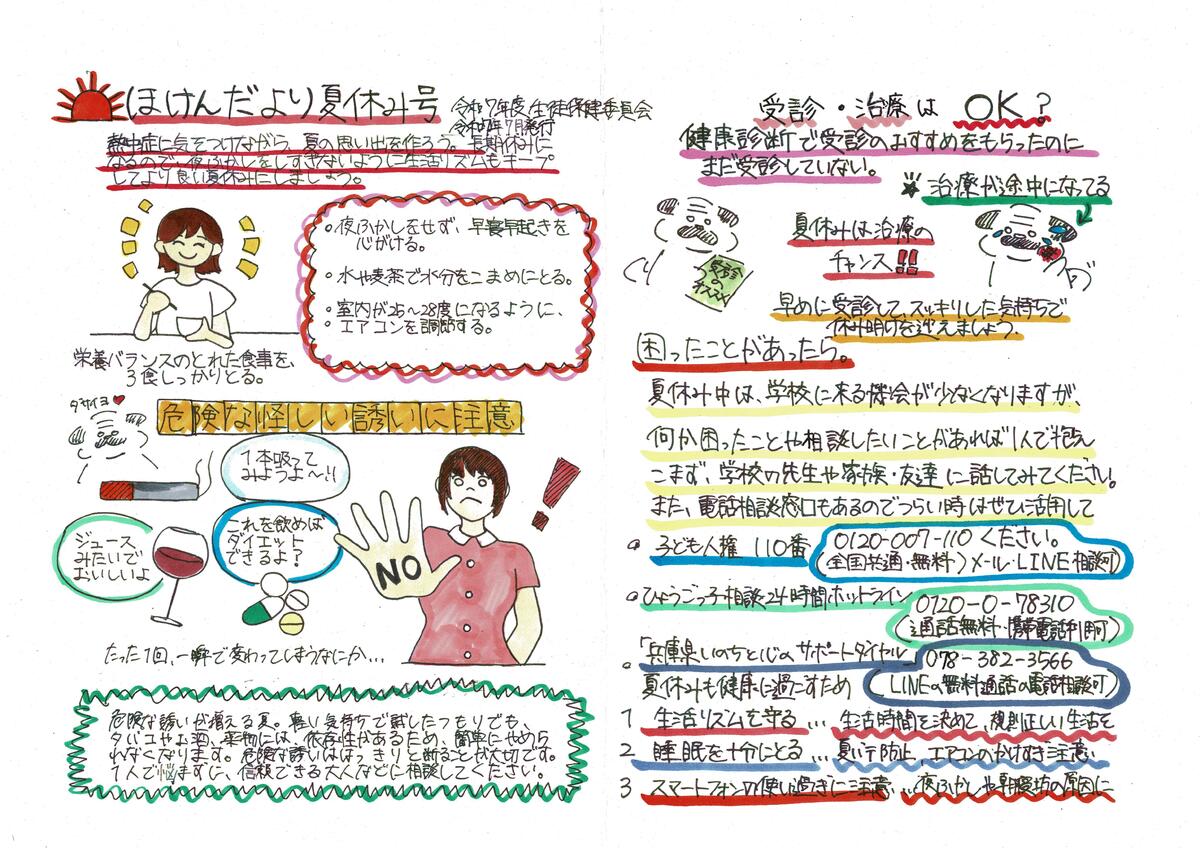 ほけんだより夏休み号
令和7年度生徒保健委員会
令和7年7月発行
熱中症に気をつけながら、夏の思い出を作ろう。長期休みに
なるので、夜ふかしをしすぎないように生活リズムもキープ
してより良い夏休みにしましょう。
・夜ふかしをせず、早寝早起きを
心がける。
・水や麦茶で水分をこまめにとる。
・室内が25〜28度になるように、
エアコンを調節する。
栄養バランスのとれた食事を、
3食しっかりとる。
危険な怪しい誘いに注意
1本吸って
みようよ〜!!
ジュース
みたいで
おいしいよ
これを飲めば
ダイエット
できるよ?
NO
たった1回、一瞬で変わってしまうなにか...
危険な誘いが増える夏。軽い気持ちで試したつもりでも、
タバコやお酒、薬物には、依存性があるため、簡単にやめら
れなくなります。危険な誘いははっきりと断ることが大切です。
1人で悩まずに、信頼できる大人などに相談してください。
受診・治療はOK?
健康診断で受診のおすすめをもらったのに
まだ受診していない。
治療が途中になってる
受診
の
オススメ
夏休みは治療の
チャンス!!
早めに受診して、スッキリした気持ちで
休み明けを迎えましょう。
困ったことがあったら。
夏休み中は、学校に来る機会が少なくなりますが、
何か困ったことや相談したいことがあれば1人で抱え
こまず、学校の先生や家族・友達に話してみてください。
また、電話相談窓口もあるのでつらい時はぜひ活用して
ください。
・子ども人権110番
0120-007-110
(全国共通・無料)メール・LINE相談可)
・ひょうごっ子相談24時間ホットライン
0120-0-78310
(通話無料・携帯電話利用可)
・「兵庫県いのちと心のサポートダイヤル
078-382-3566
(LINEの無料通話の電話相談可)
夏休みも健康に過ごすため
1 生活リズムを守る...生活時間を決めて、規則正しい生活を
2 睡眠を十分にとる...夏バテ防止、エアコンのかけすぎ注意
3 スマートフォンの使い過ぎに注意...夜ふかしや朝寝坊の原因に